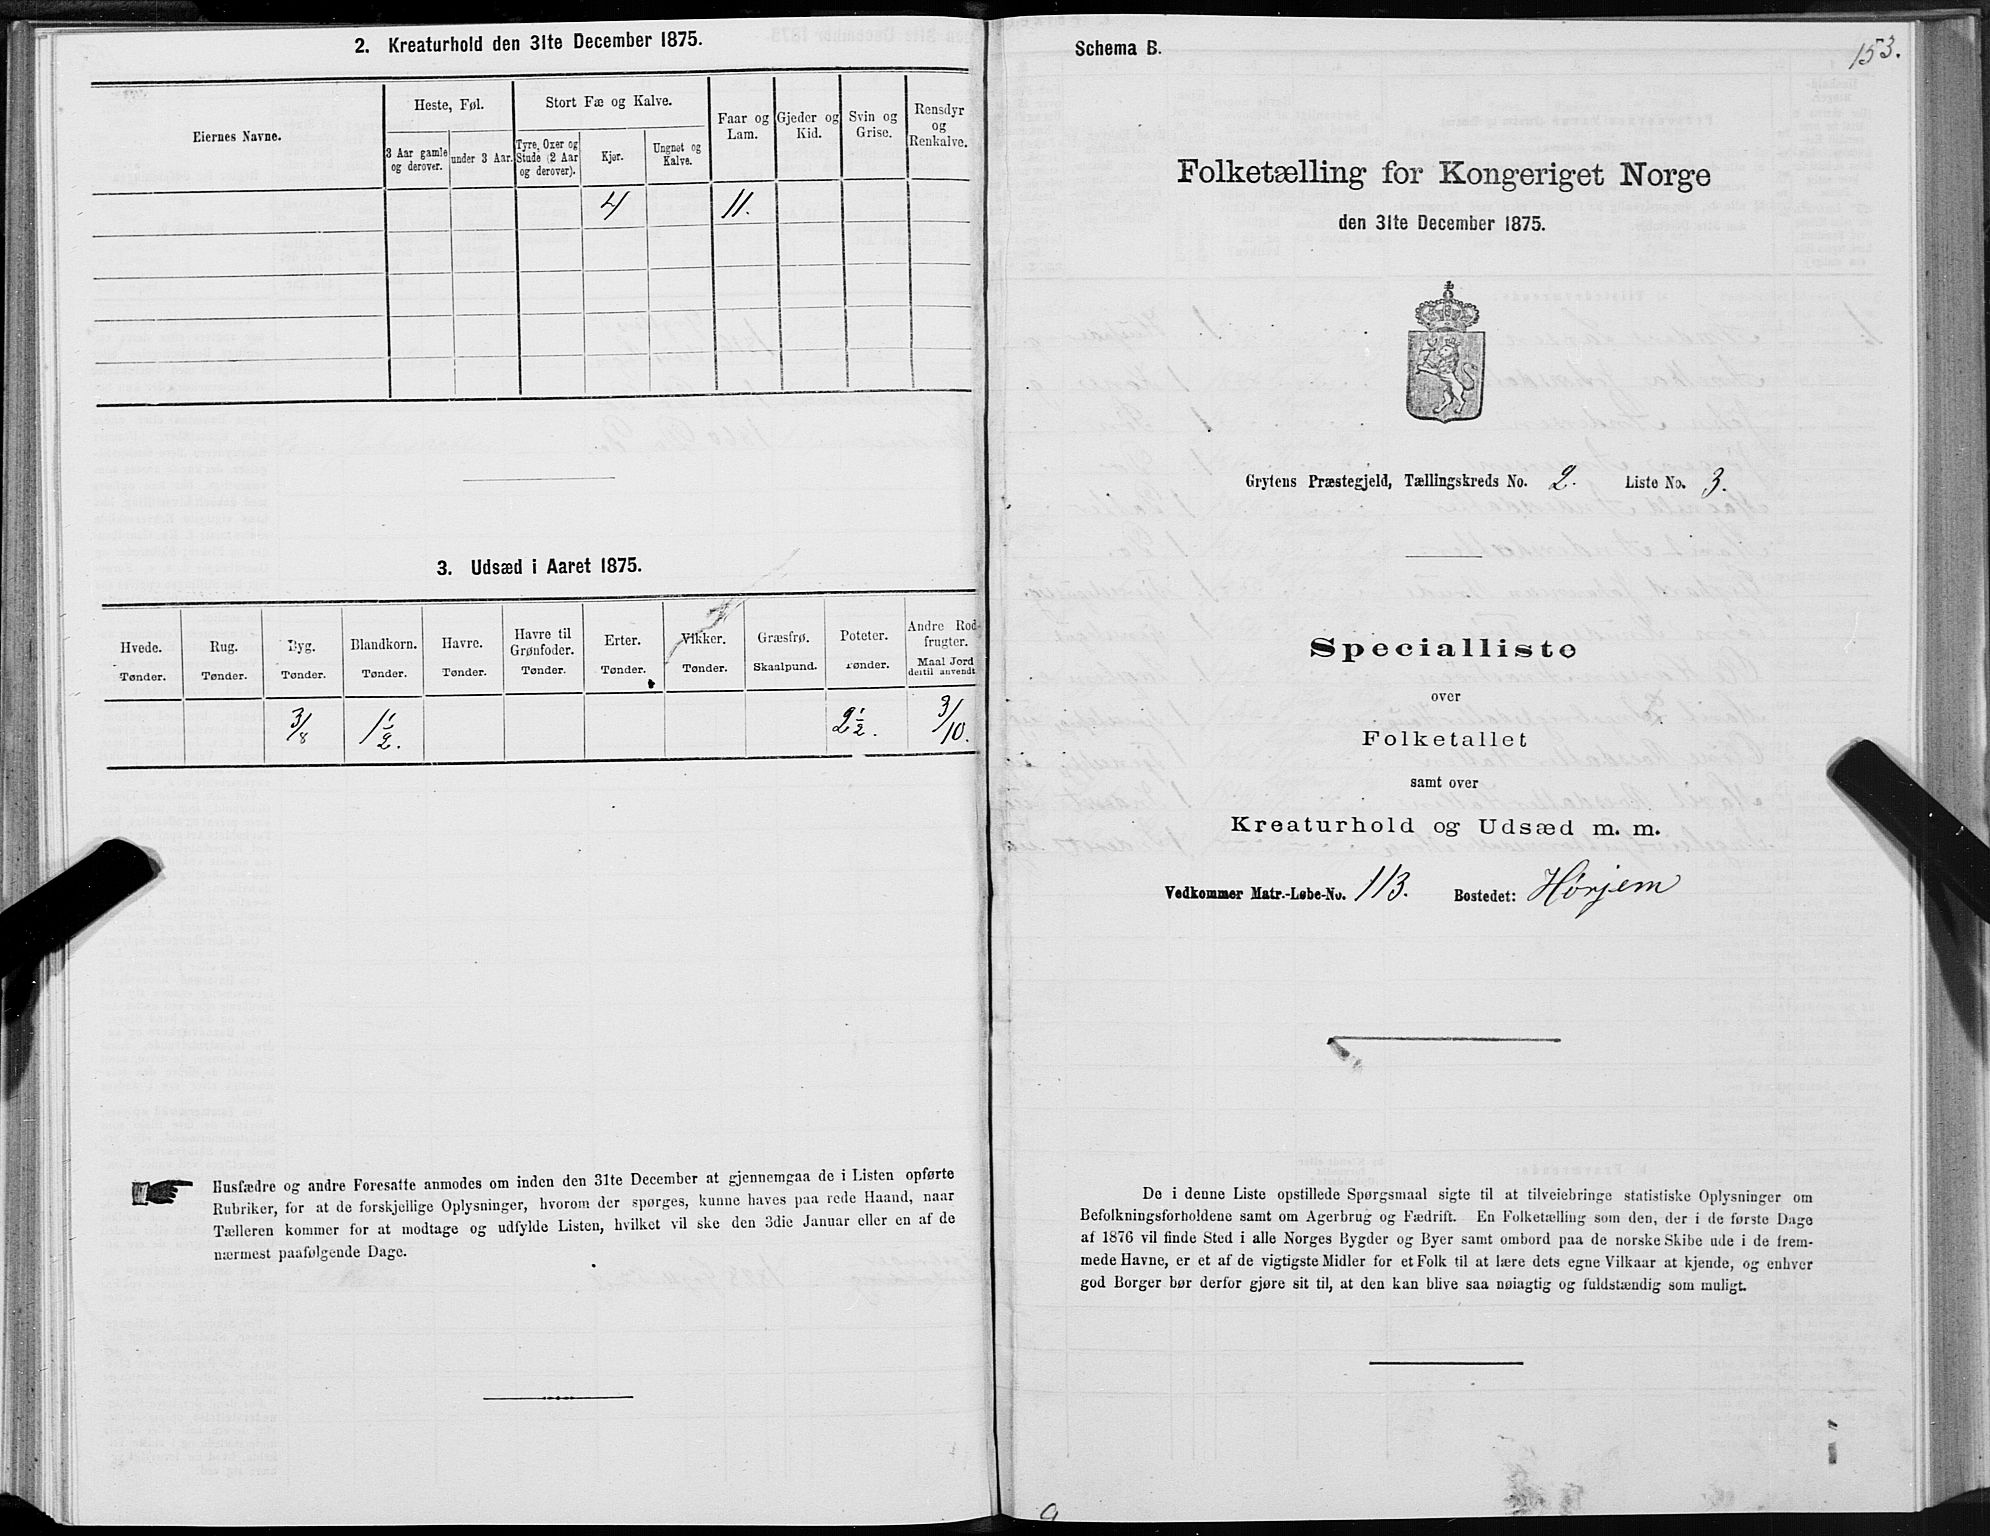 2. Kreaturhold den 31te December 1875.
Eiernes Navne.
Heste, Føl.
Stort Fæ og Kalve.
Faar og Lam.
Gjeder og Kid.
Svin og Grise.
Rensdyr og Renkalve.
3 Aar gamle og derover.
under 3 Aar.
Tyre, Oxer og Stude (2 Aar og derover).
Kjør.
Ungnøt og Kalve.
4 11.
3. Udsæd i Aaret 1875.
Hvede. Rug. Byg. Blandkorn. Havre. Havre til Grønfoder. Erter. Vikker. Græsfrø. Poteter. Andre Rodfrugter.
Tønder. Tønder. Tønder. Tønder. Tønder. Tønder. Tønder. Tønder. Skaalpund. Tønder. Maal Jord dertil anvendt
3/8 1 1/2. 2 1/2. 3/10.
Husfædre og andre Foresatte anmodes om inden den 31te December at gjennemgaa de i Listen opførte
Rubriker, for at de forskjellige Oplysninger, hvorom der spørges, kunne haves paa rede Haand, naar
Tælleren kommer for at modtage og udfylde Listen, hvilket vil ske den 3die Januar eller en af de
nærmest paafølgende Dage.
Schema B.
153.
Folketælling for Kongeriget Norge
den 31te December 1875.
Grytens Præstegjeld, Tællingskreds No. 2. Liste No. 3.
Specialliste
over
Folketallet
samt over
Kreaturhold og Udsæd m. m.
Vedkommer Matr.-Løbe-No. 113. Bostedet: Hørjem
De i denne Liste opstillede Spørgsmaal sigte til at tilveiebringe statistiske Oplysninger om
Befolkningsforholdene samt om Agerbrug og Fædrift. En Folketælling som den, der i de første Dage
af 1876 vil finde Sted i alle Norges Bygder og Byer samt ombord paa de norske Skibe ude i de frem-
mede Havne, er et af de vigtigste Midler for et Folk til at lære dets egne Vilkaar at kjende, og enhver
god Borger bør derfor gjøre sit til, at den kan blive saa nøiagtig og fuldstændig som muligt.